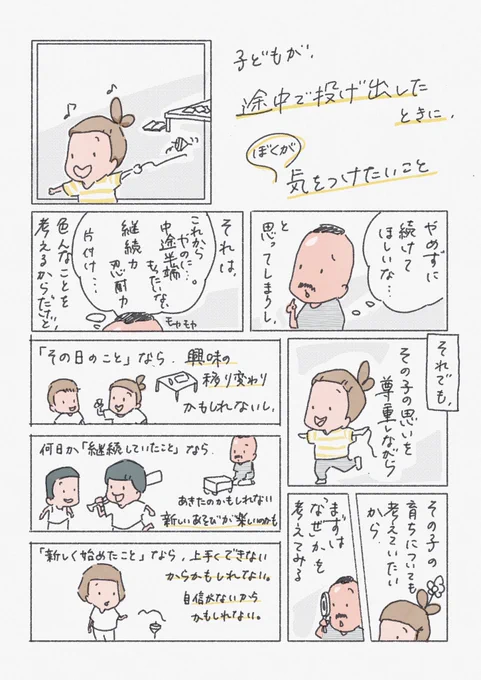 子どもが、
途中で投げ出した
ときに、
ぼくが
気をつけたいこと
やめずに
続けて
ほしいな…
と
思ってしまうし、
それは、
これから
やのに…。
中途半端
もったいない
継続力
忍耐力
片付け…
モヤモヤ
色んなことを
考えるからだけど、
それでも、
その子の思いを
尊重しながら
その子の
育ちについても
考えていたい
から
まずは
「なぜか」を
考えてみる
「その日のこと」なら、興味の
移り変わり
かもしれないし、
何日か「継続していたこと」なら、
あきたのかもしれない
新しいあそびが楽しいのかも
「新しく始めたこと」なら、上手くできない
からかもしれない。
自信がないから
かもしれない。